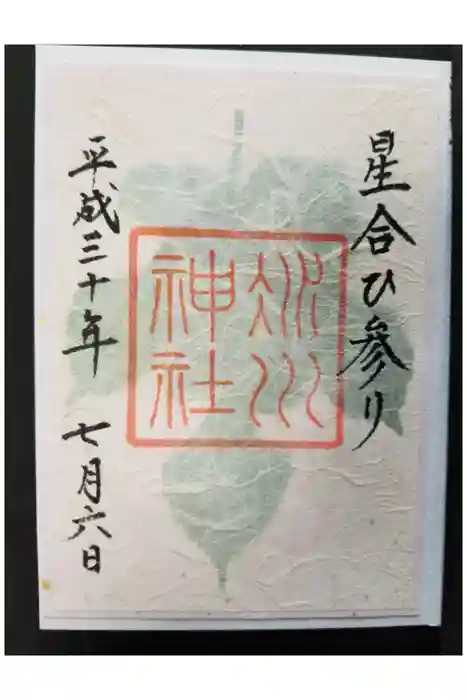 星合ひ参り
氷川
神社
平成三十年 七月六日